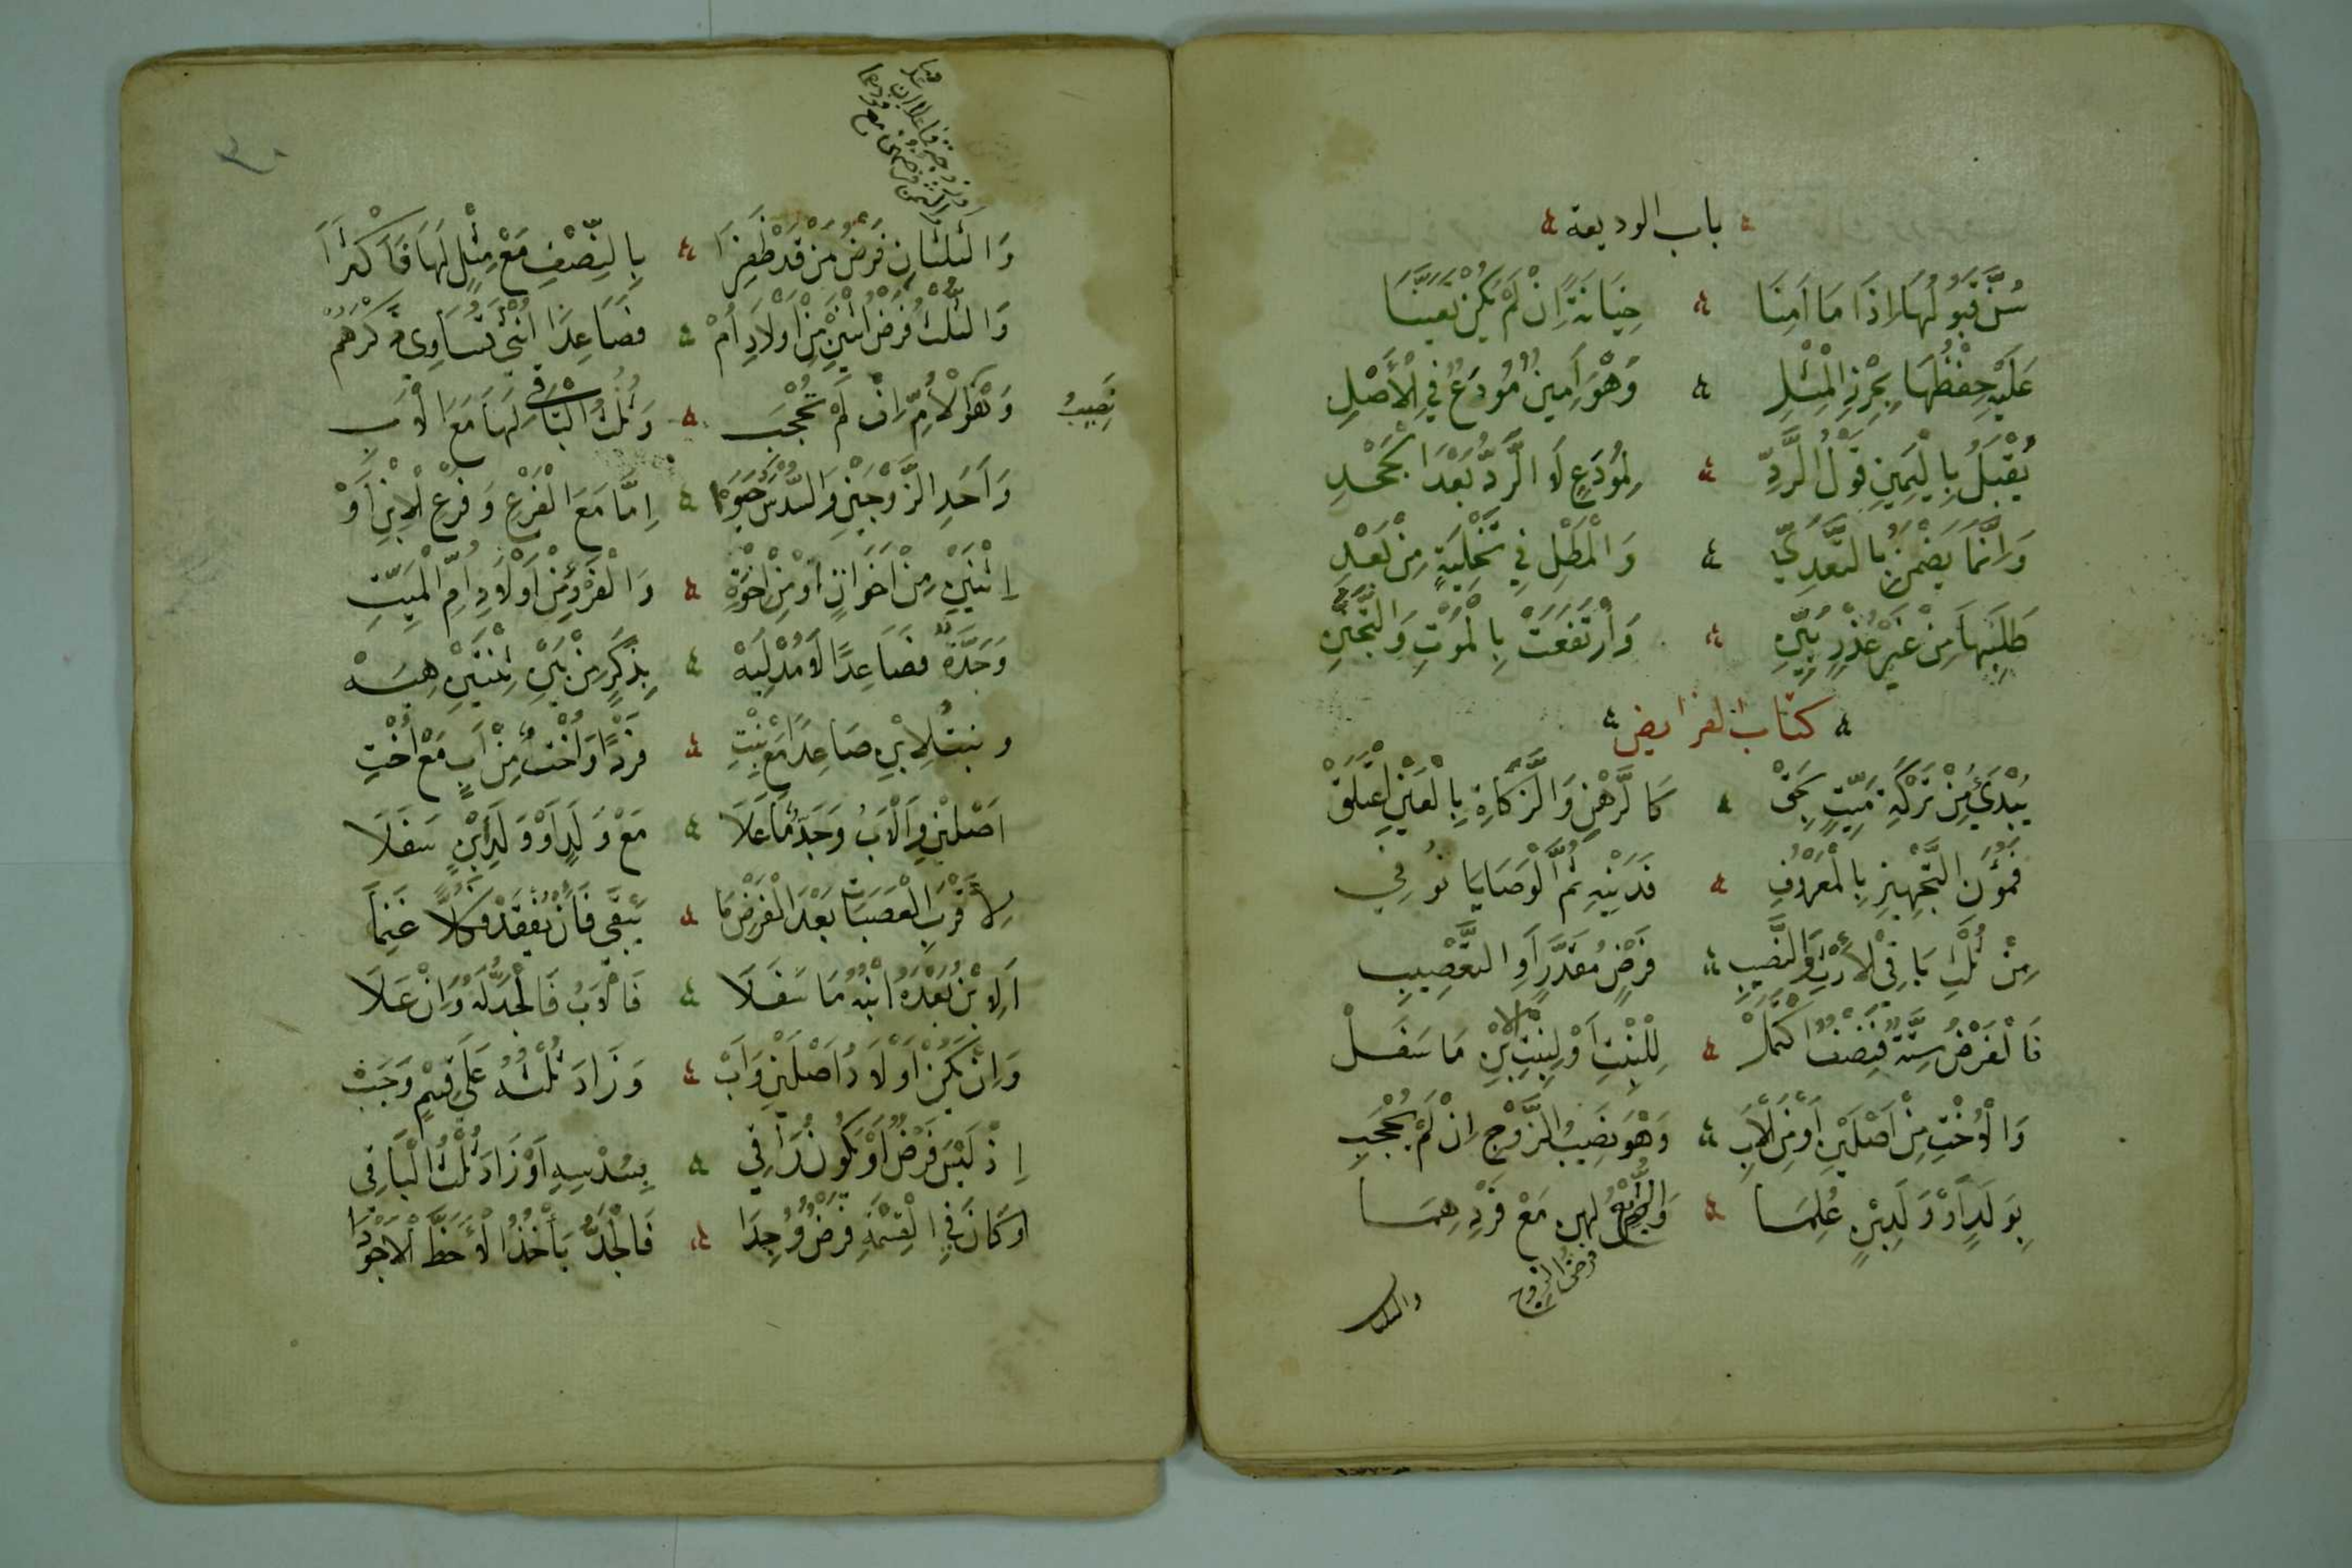 باب الوديعة
سُنَّ قَبُولُهَا اِذَا مَا اَمِنَا خِيَانَةً اِنْ لَمْ يَكُنْ تَعَيَّنَا
عَلَيْهِ حِفْظُهَا بِحِرْزِ الْمِثْلِ وَهْوَ اَمِينٌ مُودَعٌ فِي الْأَصْلِ
يُقْبَلُ بِالْيَمِينِ قَوْلُ الرَّدِّ لِمُودَعٍ لَا الرَّدُّ بَعْدَ الْجَحْدِ
وَاِنَّمَا يَضْمَنُ بِالتَّعَدِّي وَالْمَطْلِ فِي تَخْلِيَةٍ مِنْ بَعْدِ
طَلَبِهَا مِنْ غَيْرِ عُذْرٍ بَيِّنِ وَارْتَفَعَتْ بِالْمَوْتِ وَالتَّجَنُّنِ
كتاب الفرايض
يُبْدَىءُ مِنْ تَرْكَةِ مَيِّتٍ بِحَقْ كَالرَّهْنِ وَالزَّكَاةِ بِالْعَيْنِ اعْتَلَقْ
فَمُؤَنِ التَّجْهِيزِ بِالْمَعْرُوفِ فَدَيْنِهِ ثُمَّ الْوَصَايَا تُوفِي
مِنْ ثُلْثِ بَاقِي الْأَرْثِ وَالنَّصِيبِ فَرْضٍ مُقَدَّرٍ اَوِ التَّعْصِيبِ
فَالْفَرْضُ سِتَّةٌ فَنِصْفٌ اكْتَمَلْ لِلْبِنْتِ اَوْ لِبِنْتِ الْاِبْنِ مَا سَفَلْ
وَالْأُخْتِ مِنْ اَصْلَيْنِ اَوْ مِنَ الْأَبِ وَهْوَ نَصِيبُ الزَّوْجِ اِنْ لَمْ يُحْجَبِ
بِوَلَدٍ اَوْ وَلَدِ ابْنٍ عُلِمَا وَالرُّبْعُ لهن مَعْ فَرْدِهِمَا
فرض الزوج
والثلثان
وَالثُّلُثَانِ فَرْضُ مَنْ قَدْ ظَفِرَا بِالنِّصْفِ مَعْ مِثْلٍ لَهَا فَأَكْثَرَا
وَالثُّلْثُ فَرْضُ اثْنَيْنِ مِنْ اَوْلَادِ اُمْ فَصَاعِدًا اُنْثَى تُسَاوِي ذَكَرَهُمْ
نَصِيبُ
وَهْوَ لِأُمٍّ اِنْ لَمْ تُحْجَبِ وَثُلْثُ الْبَاقِي لَهَا مَعَ الْأَبِ
وَاَحَدِ الزَّوْجَيْنِ وَالسُّدْسَ حَبَوْا اِمَّا مَعَ الْفَرْعِ وَفَرْعِ الْاِبْنِ اَوْ
اِثْنَيْنِ مِنْ اَخَوَاتٍ اَوْ مِنْ اِخْوَةِ وَالْفَرْدُ مِنْ اَوْلَادِ اُمِّ الْمَيِّتِ
وَجَدَّةٌ فَصَاعِدًا لَا مُدْلِيَهْ بِذَكَرٍ مِنْ بَيْنِ ثِنْتَيْنِ هِيَهْ
وبنتُ الِابْنِ صَاعِدًا مَعْ بِنْتِ فَرْدًا وَاُخْتٌ مِنْ اَبٍ مَعْ اُخْتِ
اَصْلَيْنِ وَالْاَبُ وَجَدٌّ مَا عَلَا مَعْ وَلَدٍ اَوْ وَلَدِ ابْنٍ سَفَلَا
لِأَقْرَبِ الْعَصَبَاتِ بَعْدَ الْفَرْضِ مَا يَبْقَى فَاَنْ يُفْقَدْ فَكُلًّا غَنِمَا
اَلِابْنُ بَعْدَهُ ابْنُهُ مَا سَفَلَا فَالْاَبُ فَالْجَدُّ لَهُ وَاِنْ عَلَا
وَاِنْ يَكُنْ اَوْلَادُ اَصْلَيْنِ وَاَبْ وَزَادَ ثُلْثُهُ عَلَى قِسْمٍ وَجَبْ
اِذْ لَيْسَ فَرْضٌ اَوْ يَكُونُ رَاقِي بِسُدْسِهِ اَوْ زَادَ ثُلْثُ الْبَاقِي
اَوْ كَانَ فِي الْقِسْمَةِ فَرْضٌ وُجِدَا فَالْجَدُّ يَأْخُذُ الْأَحَظَّ الْأَجْوَدَا